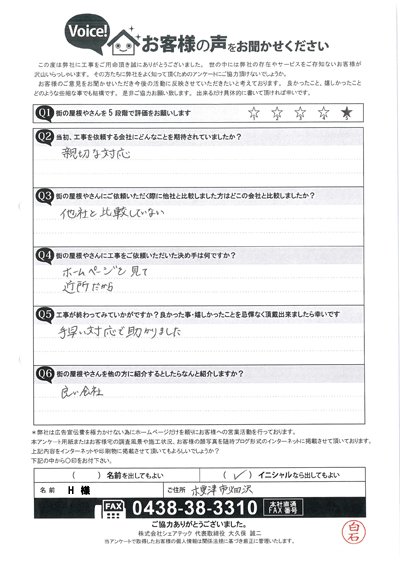 Voice!
お客様の声をお聞かせください
この度は弊社に工事をご用命頂き誠にありがとうございました。世の中には弊社の存在やサービスをご存知ないお客様が
沢山いらっしゃいます。その方たちに弊社をよく知って頂くためのアンケートにご協力頂けないでしょうか。
お客様のご意見をお聞かせいただき今後の活動に反映させていただきたいと考えております。良かったこと、嬉しかったこと
どのような些細な事でも結構です。是非ご協力お願い致します。出来るだけ具体的に書いて頂ければ幸いです。
Q1 街の屋根やさんを5段階で評価をお願いします
1 2 3 4 5
Q2 当初、工事を依頼する会社にどんなことを期待されていましたか?
親切な対応
Q3 街の屋根やさんにご依頼いただく際に他社と比較しました方はどこの会社と比較しましたか?
他社と比較していない
Q4 街の屋根やさんに工事をご依頼いただいた決め手は何ですか?
ホームページを見て
近所だから
Q5 工事が終わってみていかがですか?良かった事・嬉しかったことを忌憚なく頂戴出来ましたら幸いです
手早い対応で助かりました
Q6 街の屋根やさんを他の方に紹介するとしたらなんと紹介しますか?
良い会社
*弊社は広告宣伝費を極力かけない為にホームページだけを頼りにお客様への営業活動を行っております。
本アンケート用紙またはお客様宅の調査風景や施工状況、お客様の顔写真を随時ブログ形式のインターネットに掲載させて頂いております。
上記内容をインターネットや印刷物に掲載させて頂いてもよろしいでしょうか?
下記の中から〇印をお付下さい。
( ) 名前を出してもよい ( ✓ ) イニシャルなら出してもよい
名前 H 様 ご住所 木更津市畑沢
FAX 0438-38-3310 本社直通 FAX番号
ご協力ありがとうございました。
株式会社シェアテック 代表取締役 大久保 誠二
当アンケートで取得したお客様の個人情報は関係法規に基づき厳正に管理いたします。
白石